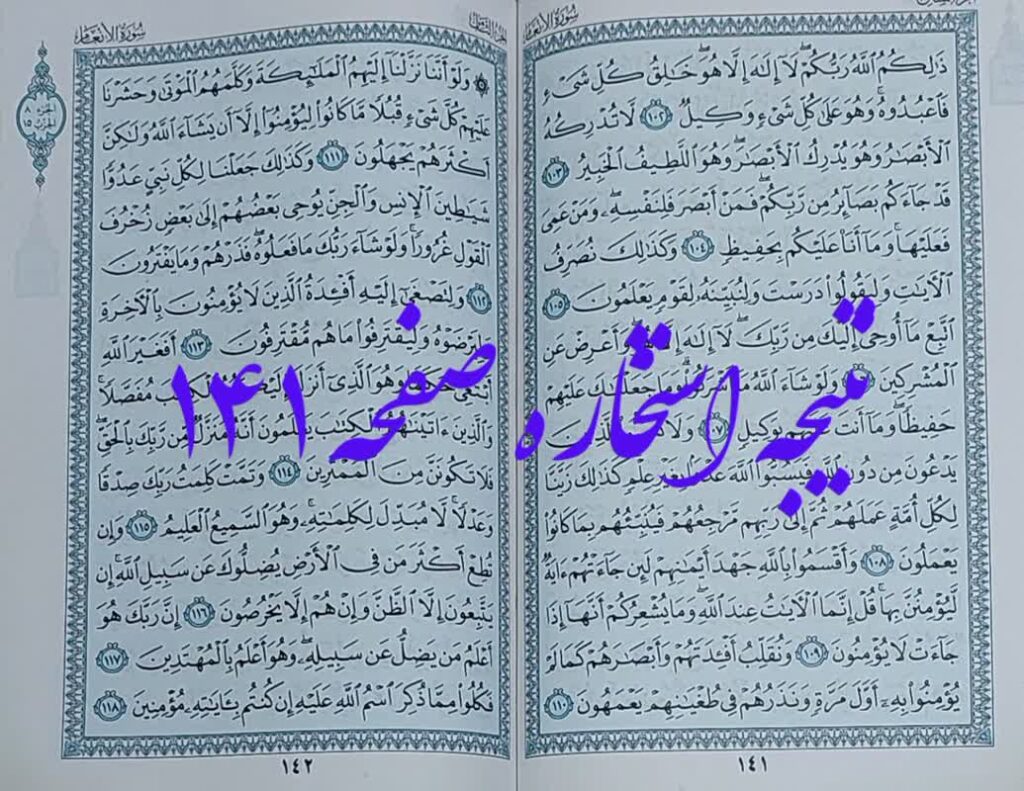 سُورَةُ الأَنْعَامِ
ذَٰلِكُمُ ٱللَّهُ رَبُّكُمْ ۖ لَآ إِلَٰهَ إِلَّا هُوَ ۖ خَٰلِقُ كُلِّ شَىْءٍ
فَٱعْبُدُوهُ ۚ وَهُوَ عَلَىٰ كُلِّ شَىْءٍ وَكِيلٌ ١٠٢ لَّا تُدْرِكُهُ
ٱلْأَبْصَٰرُ وَهُوَ يُدْرِكُ ٱلْأَبْصَٰرَ ۖ وَهُوَ ٱللَّطِيفُ ٱلْخَبِيرُ ١٠٣
قَدْ جَآءَكُم بَصَآئِرُ مِن رَّبِّكُمْ ۖ فَمَنْ أَبْصَرَ فَلِنَفْسِهِۦ ۖ وَمَنْ عَمِىَ
فَعَلَيْهَا ۚ وَمَآ أَنَا۠ عَلَيْكُم بِحَفِيظٍ ١٠٤ وَكَذَٰلِكَ نُصَرِّفُ
ٱلْأٓيَٰتِ وَلِيَقُولُوا۟ دَرَسْتَ وَلِنُبَيِّنَهُۥ لِقَوْمٍ يَعْلَمُونَ ١٠٥
ٱتَّبِعْ مَآ أُوحِىَ إِلَيْكَ مِن رَّبِّكَ ۖ لَآ إِلَٰهَ إِلَّا هُوَ ۖ وَأَعْرِضْ عَنِ
ٱلْمُشْرِكِينَ وَلَوْ شَآءَ ٱللَّهُ مَآ أَشْرَكُوا۟ ۗ وَمَا جَعَلْنَٰكَ عَلَيْهِمْ
حَفِيظًا ۖ وَمَآ أَنتَ عَلَيْهِم بِوَكِيلٍ ١٠٧ وَلَا تَسُبُّوا۟ ٱلَّذِينَ
يَدْعُونَ مِن دُونِ ٱللَّهِ فَيَسُبُّوا۟ ٱللَّهَ عَدْوًۢا بِغَيْرِ عِلْمٍ ۗ كَذَٰلِكَ زَيَّنَّا
لِكُلِّ أُمَّةٍ عَمَلَهُمْ ثُمَّ إِلَىٰ رَبِّهِم مَّرْجِعُهُمْ فَيُنَبِّئُهُم بِمَا كَانُوا۟
يَعْمَلُونَ ١٠٨ وَأَقْسَمُوا۟ بِٱللَّهِ جَهْدَ أَيْمَٰنِهِمْ لَئِن جَآءَتْهُمْ ءَايَةٌ
لَّيُؤْمِنُنَّ بِهَا ۚ قُلْ إِنَّمَا ٱلْأٓيَٰتُ عِندَ ٱللَّهِ ۖ وَمَا يُشْعِرُكُمْ أَنَّهَآ إِذَا
جَآءَتْ لَا يُؤْمِنُونَ ١٠٩ وَنُقَلِّبُ أَفْـِٔدَتَهُمْ وَأَبْصَٰرَهُمْ كَمَا لَمْ
يُؤْمِنُوا۟ بِهِۦٓ أَوَّلَ مَرَّةٍ وَنَذَرُهُمْ فِى طُغْيَٰنِهِمْ يَعْمَهُونَ ١١٠
١٤١
سُورَةُ الأَنْعَامِ
الجزء ٨
الحزب ١٥
۞ وَلَوْ أَنَّنَا نَزَّلْنَآ إِلَيْهِمُ ٱلْمَلَٰٓئِكَةَ وَكَلَّمَهُمُ ٱلْمَوْتَىٰ وَحَشَرْنَا
عَلَيْهِمْ كُلَّ شَىْءٍ قُبُلًا مَّا كَانُوا۟ لِيُؤْمِنُوٓا۟ إِلَّآ أَن يَشَآءَ ٱللَّهُ وَلَٰكِنَّ
أَكْثَرَهُمْ يَجْهَلُونَ ١١١ وَكَذَٰلِكَ جَعَلْنَا لِكُلِّ نَبِىٍّ عَدُوًّا
شَيَٰطِينَ ٱلْإِنسِ وَٱلْجِنِّ يُوحِى بَعْضُهُمْ إِلَىٰ بَعْضٍ زُخْرُفَ
ٱلْقَوْلِ غُرُورًا ۚ وَلَوْ شَآءَ رَبُّكَ مَا فَعَلُوهُ ۖ فَذَرْهُمْ وَمَا يَفْتَرُونَ
١١٢ وَلِتَصْغَىٰٓ إِلَيْهِ أَفْـِٔدَةُ ٱلَّذِينَ لَا يُؤْمِنُونَ بِٱلْأٓخِرَةِ
وَلِيَرْضَوْهُ وَلِيَقْتَرِفُوا۟ مَا هُم مُّقْتَرِفُونَ ١١٣ أَفَغَيْرَ ٱللَّهِ
أَبْتَغِى حَكَمًا وَهُوَ ٱلَّذِىٓ أَنزَلَ إِلَيْكُمُ ٱلْكِتَٰبَ مُفَصَّلًا ۚ
وَٱلَّذِينَ ءَاتَيْنَٰهُمُ ٱلْكِتَٰبَ يَعْلَمُونَ أَنَّهُۥ مُنَزَّلٌ مِّن رَّبِّكَ بِٱلْحَقِّ ۖ
فَلَا تَكُونَنَّ مِنَ ٱلْمُمْتَرِينَ ١١٤ وَتَمَّتْ كَلِمَتُ رَبِّكَ صِدْقًا
وَعَدْلًا ۚ لَّا مُبَدِّلَ لِكَلِمَٰتِهِۦ ۚ وَهُوَ ٱلسَّمِيعُ ٱلْعَلِيمُ ١١٥ وَإِن
تُطِعْ أَكْثَرَ مَن فِى ٱلْأَرْضِ يُضِلُّوكَ عَن سَبِيلِ ٱللَّهِ ۚ إِن
يَتَّبِعُونَ إِلَّا ٱلظَّنَّ وَإِنْ هُمْ إِلَّا يَخْرُصُونَ ١١٦ إِنَّ رَبَّكَ هُوَ
أَعْلَمُ مَن يَضِلُّ عَن سَبِيلِهِۦ ۖ وَهُوَ أَعْلَمُ بِٱلْمُهْتَدِينَ ١١٧
فَكُلُوا۟ مِمَّا ذُكِرَ ٱسْمُ ٱللَّهِ عَلَيْهِ إِن كُنتُم بِـَٔايَٰتِهِۦ مُؤْمِنِينَ ١١٨
١٤٢
نتیجه استخاره صفحه ۱۴۱